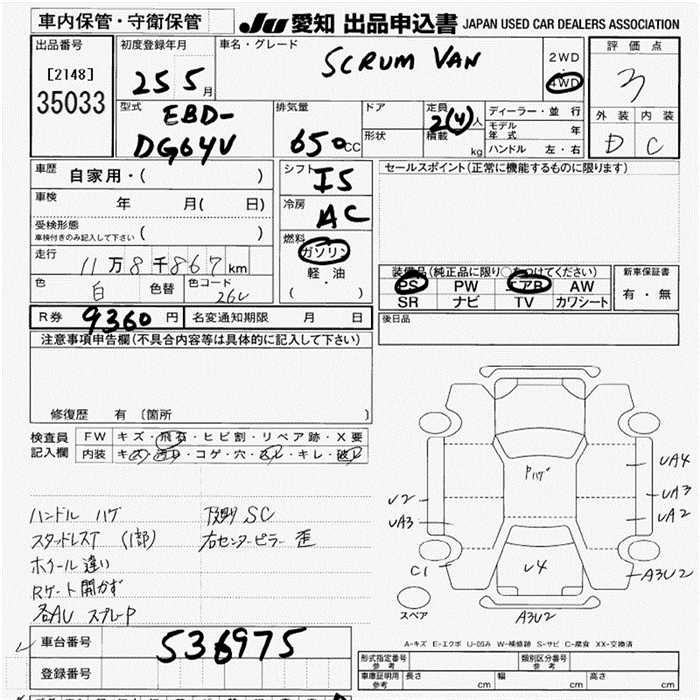 車内保管・守衛保管
JU 愛知 出品申込書 JAPAN USED CAR DEALERS ASSOCIATION
出品番号
[2148]
35033
初度登録年月
25 5月
車名・グレード
SCRUM VAN
2WD
4WD
評価点
3
外装 内装
D C
型式
EBD-
DG64V
排気量
650cc
ドア
形状
定員
2(4)人
積載
kg
ディーラー・並行
モデル年式 年
ハンドル 左・右
車歴
自家用・( )
車検
年 月( 日)
受検形態
車検付きのみ記入して下さい ( )
走行
11万8千867km
色
白
色替
色コード
26U
シフト
I5
冷房
AC
燃料
ガソリン
軽・油
( )
セールスポイント(正常に機能するものに限ります)
装備品(純正品に限り○をつけてください)
PS PW エアB AW
SR ナビ TV カワシート
新車保証書
有・無
後日品
R券 9360円
名変通知期限 月 日
注意事項申告欄(不具合内容等は具体的に記入して下さい)
修復歴 有 〔箇所 〕
検査員記入欄
FW キズ・飛石・ヒビ割・リペア跡・X要
内装 キズ・汚れ・コゲ・穴・スレ・キレ・破レ
ハンドル ハゲ
スタッドレスT (1部)
ホイール違い
Rゲート開かず
各AU スプレーP
下廻り SC
右センターピラー 歪
Pハゲ
U2
UA3
C1
U4
UA4
UA3
UA2
A3U2
A3U2
スペア
A-キズ E-エクボ U-凹み W-補修跡 S-サビ C-腐食 XX-交換済
車台番号
536975
登録番号
形式指定番号 参考
類別区分番号 参考
車庫証明用 参考
長さ cm
幅 cm
高さ cm